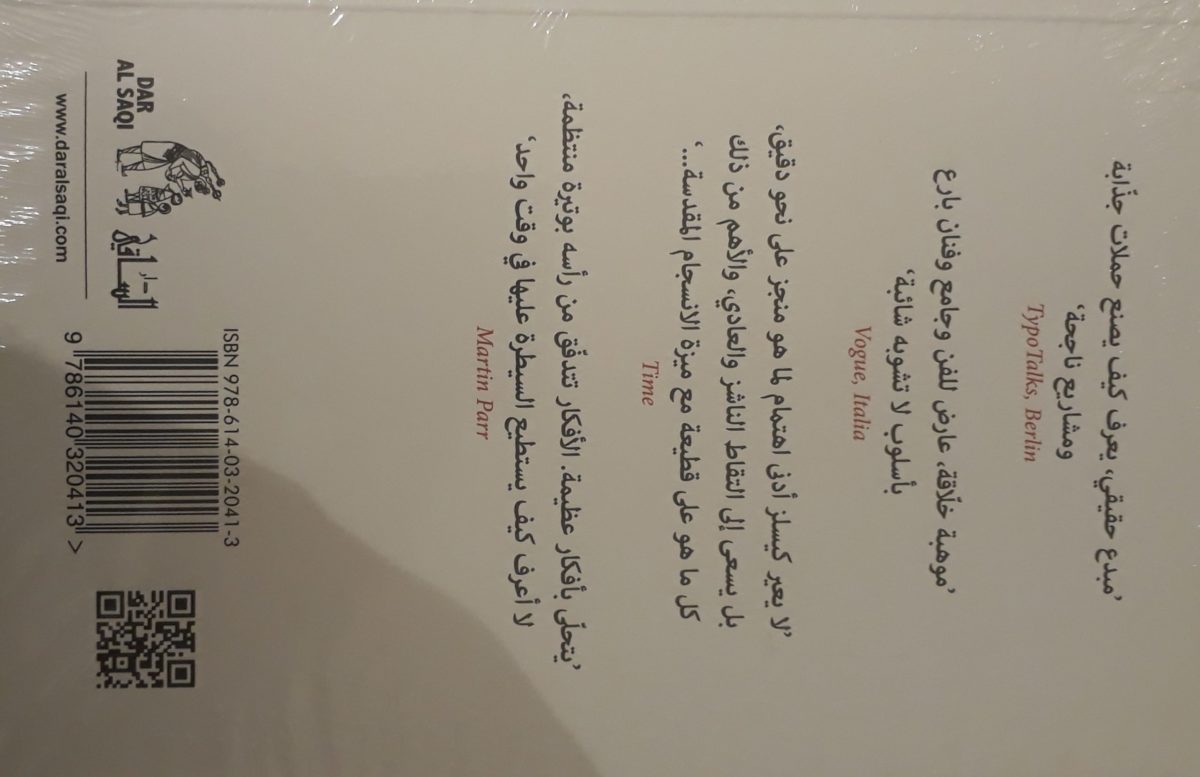 ’مبدع حقيقي، يعرف كيف يصنع حملات جذّابة
ومشاريع ناجحة‘
TypoTalks, Berlin
’موهبة خلّاقة، عارض للفن وجامع وفنان بارع
بأسلوب لا تشوبه شائبة‘
Vogue, Italia
’لا يعير كيسلز أدنى اهتمام لما هو منجز على نحو دقيق،
بل يسعى إلى التقاط الناشز والعادي، والأهم من ذلك
كل ما هو على قطيعة مع ميزة الانسجام المقدسة...‘
Time
’يتحلّى بأفكار عظيمة. الأفكار تتدفّق من رأسه بوتيرة منتظمة،
لا أعرف كيف يستطيع السيطرة عليها في وقت واحد‘
Martin Parr
ISBN 978-614-03-2041-3
9 786140 320413 >
DAR
AL SAQI
دار
الساقي
www.daralsaqi.com